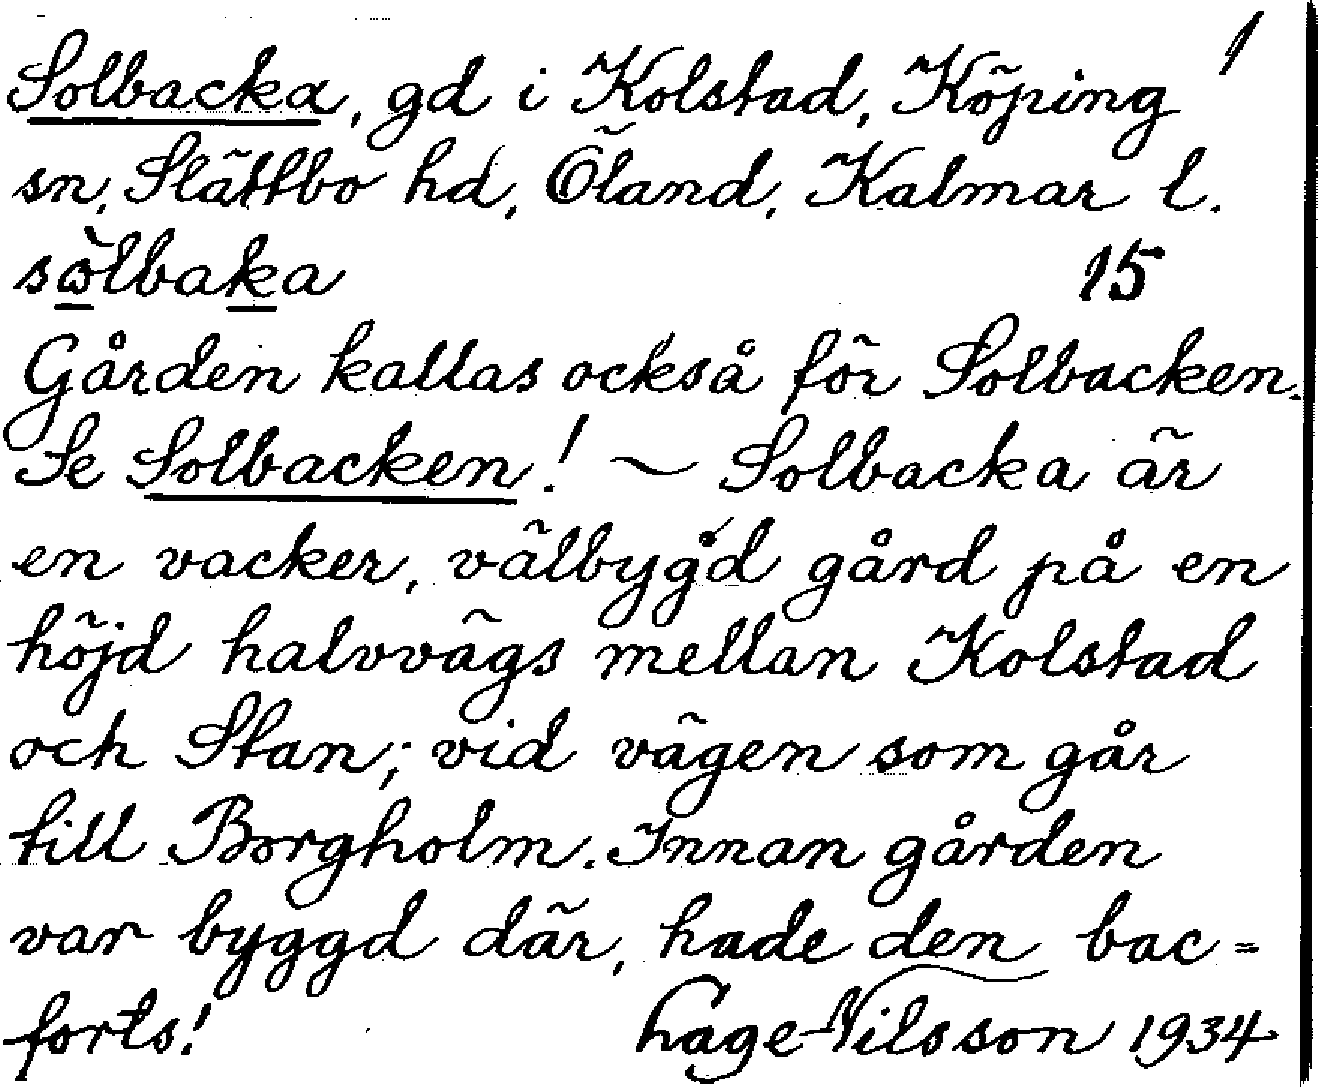 1
Solbacka, gd i Kolstad, Köping
sn, Slättbo hd, Öland, Kalmar l.
sòlbaka 15
Gården kallas också för Solbacken.
Se Solbacken! ~ Solbacka är
en vacker, välbygd gård på en
höjd halvvägs mellan Kolstad
och Stan; vid vägen som går
till Borgholm. Innan gården
var byggd där, hade den bac=
forts! Hage-Nilsson 1934